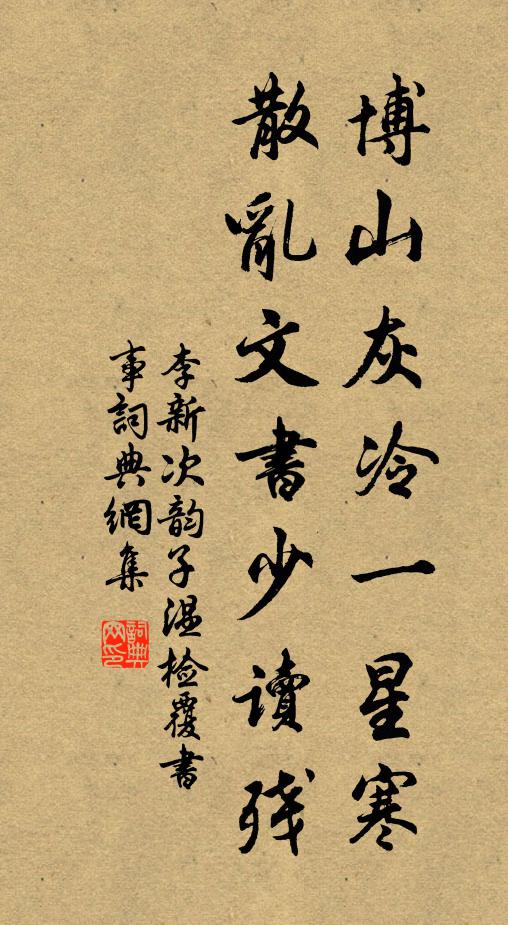 博山灰冷一星寒
散亂文書少讀残
李新次韵子温检覆書
事詞典網集
詞典网印